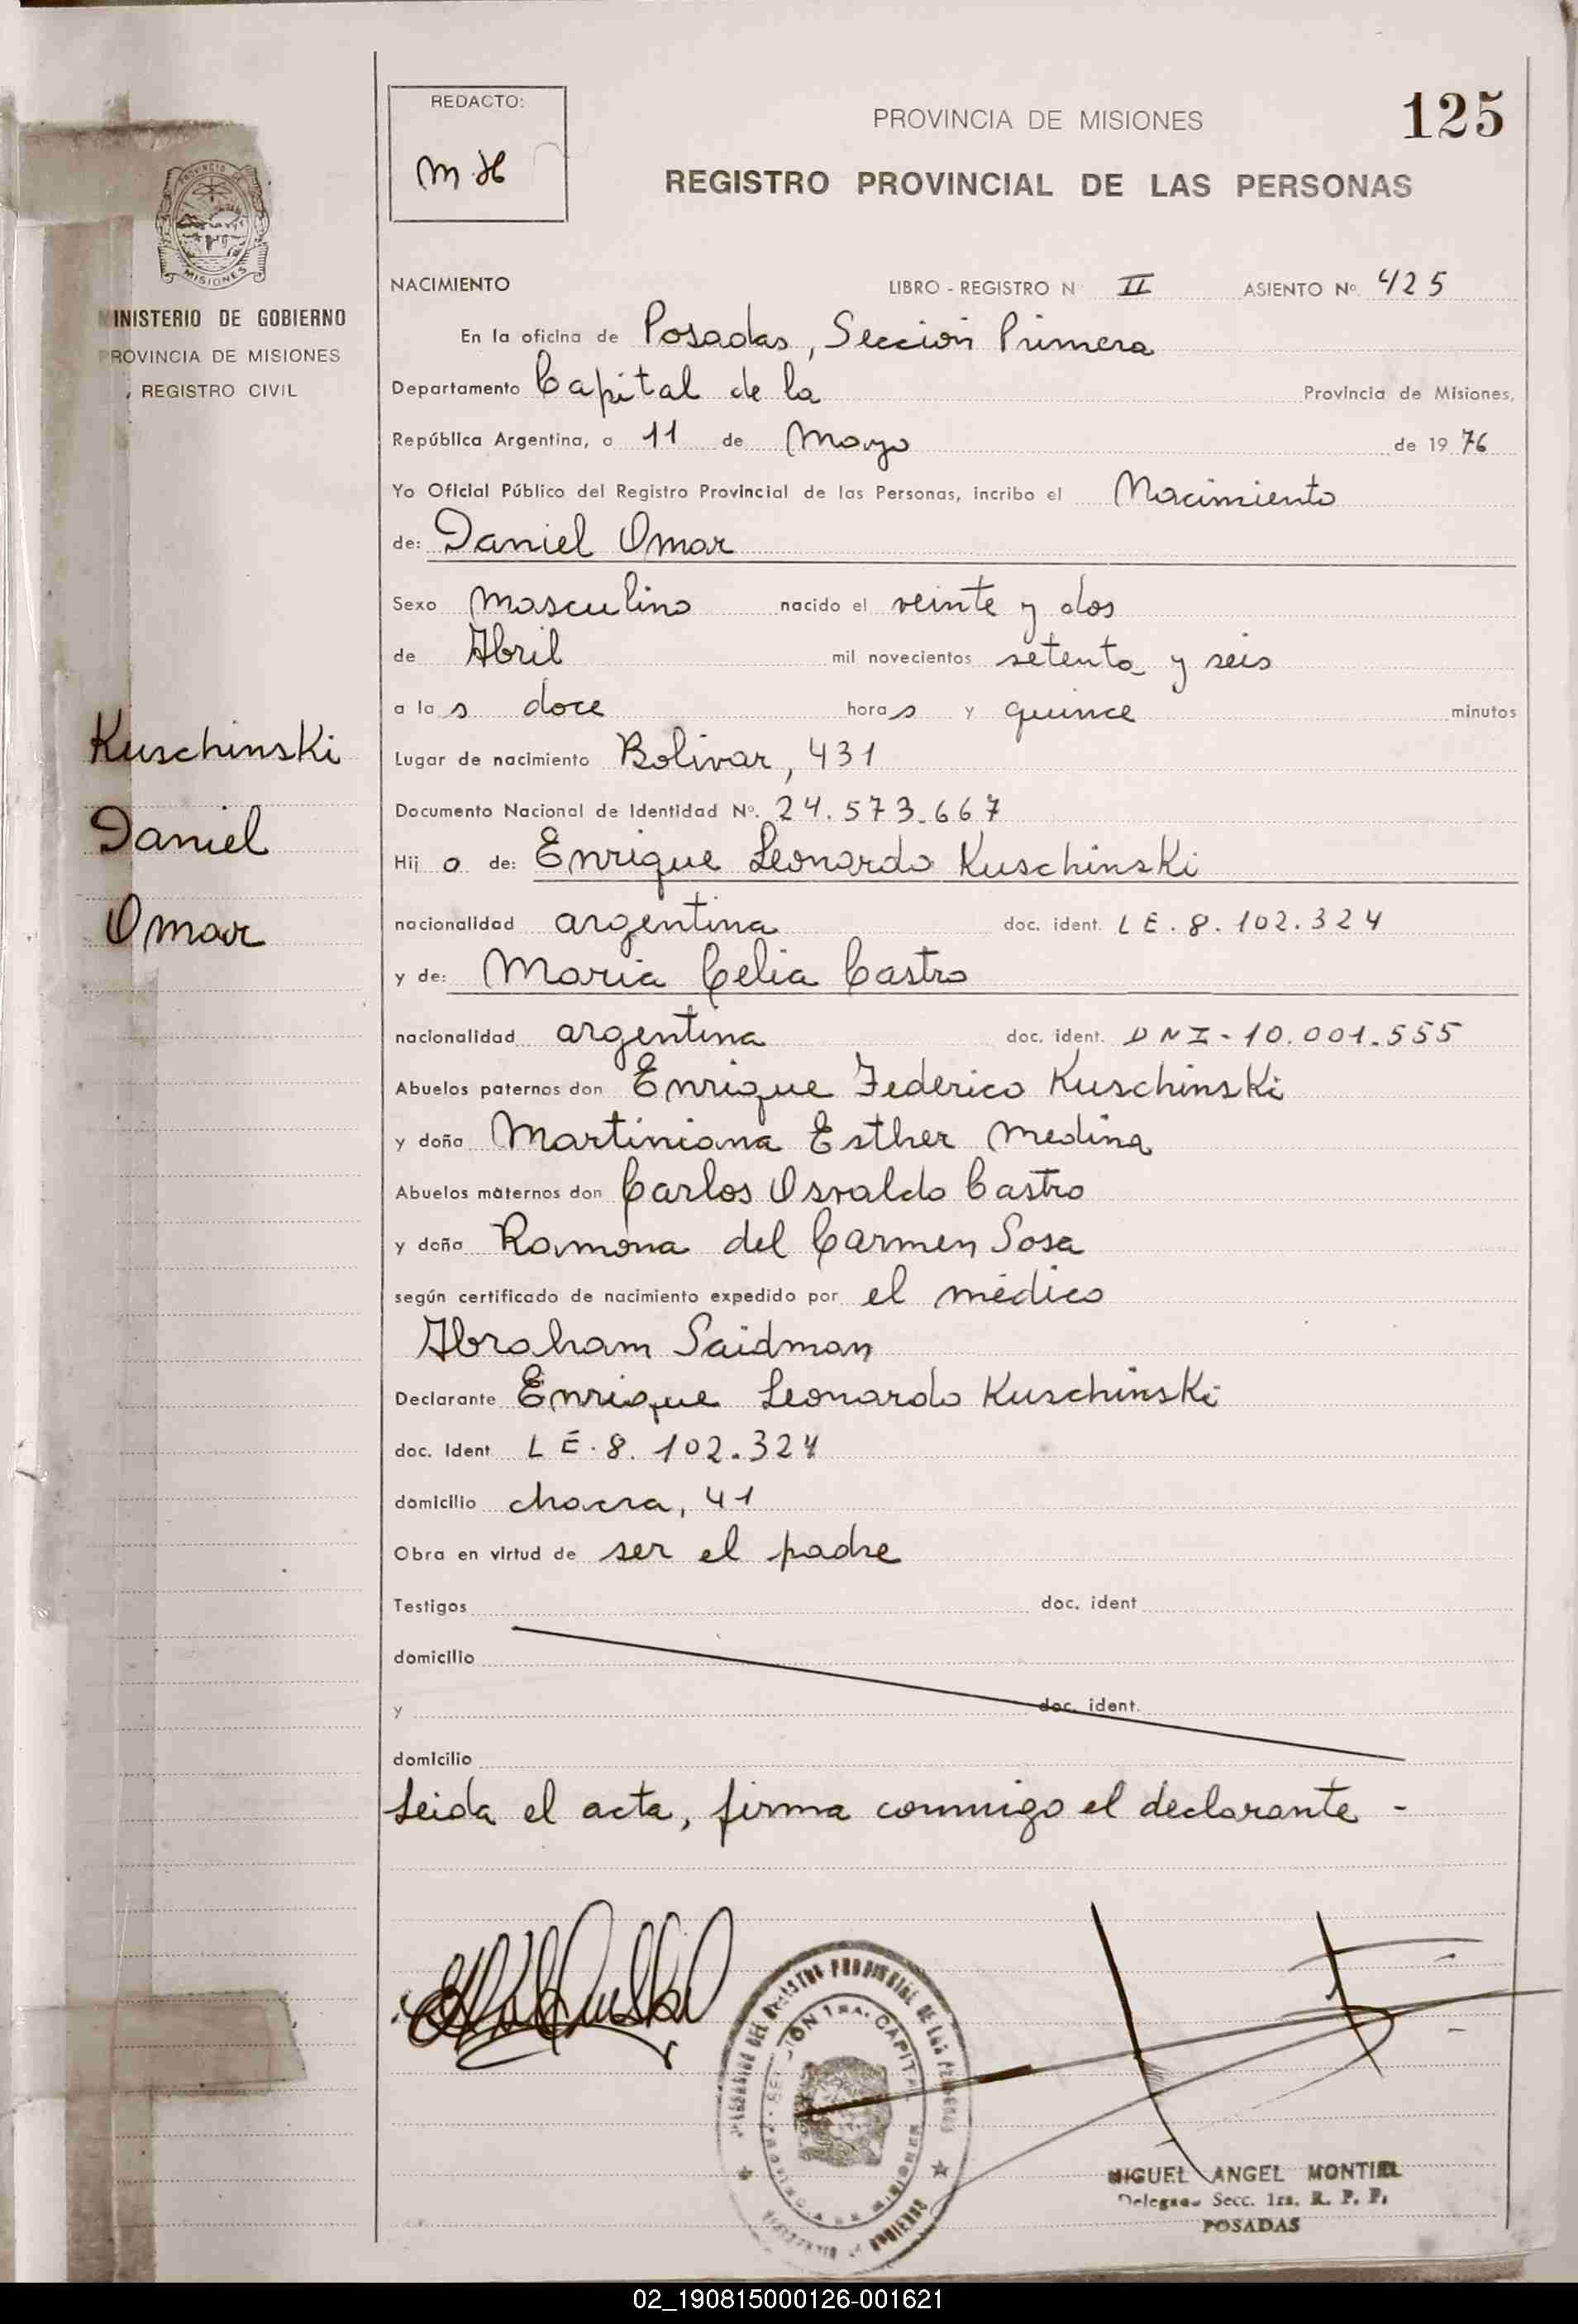 REDACTO:
M.H
PROVINCIA DE MISIONES
125
REGISTRO PROVINCIAL DE LAS PERSONAS
PROVINCIA DE
MISIONES
MINISTERIO DE GOBIERNO
PROVINCIA DE MISIONES
REGISTRO CIVIL
NACIMIENTO LIBRO - REGISTRO N II ASIENTO Nº 425
En la oficina de Posadas, Sección Primera
Departamento Capital de la Provincia de Misiones,
República Argentina, a 11 de Mayo de 1976
Yo Oficial Público del Registro Provincial de las Personas, incribo el Nacimiento
de: Daniel Omar
Sexo Masculino nacido el veinte y dos
de Abril mil novecientos setenta y seis
a las doce horas y quince minutos
Lugar de nacimiento Bolivar, 431
Documento Nacional de Identidad Nº. 24.573.667
Hijo de: Enrique Leonardo Kuschinski
nacionalidad argentina doc. ident. LE. 8.102.324
y de: Maria Celia Castro
nacionalidad argentina doc. ident. DNI - 10.001.555
Abuelos paternos don Enrique Federico Kuschinski
y doña Martiniana Esther Medina
Abuelos maternos don Carlos Osvaldo Castro
y doña Ramona del Carmen Sosa
según certificado de nacimiento expedido por el médico
Abraham Saidman
Declarante Enrique Leonardo Kuschinski
doc. Ident LE. 8.102.324
domicilio chacra, 41
Obra en virtud de ser el padre
Testigos doc. ident
domicilio
y doc. ident.
domicilio
Leida el acta, firma conmigo el declarante -
Kuschinski
Daniel
Omar
REGISTRO PROVINCIAL DE LAS PERSONAS
MIGUEL ANGEL MONTIEL
Delegado Secc. 1ra. R. P. P.
POSADAS
02_190815000126-001621